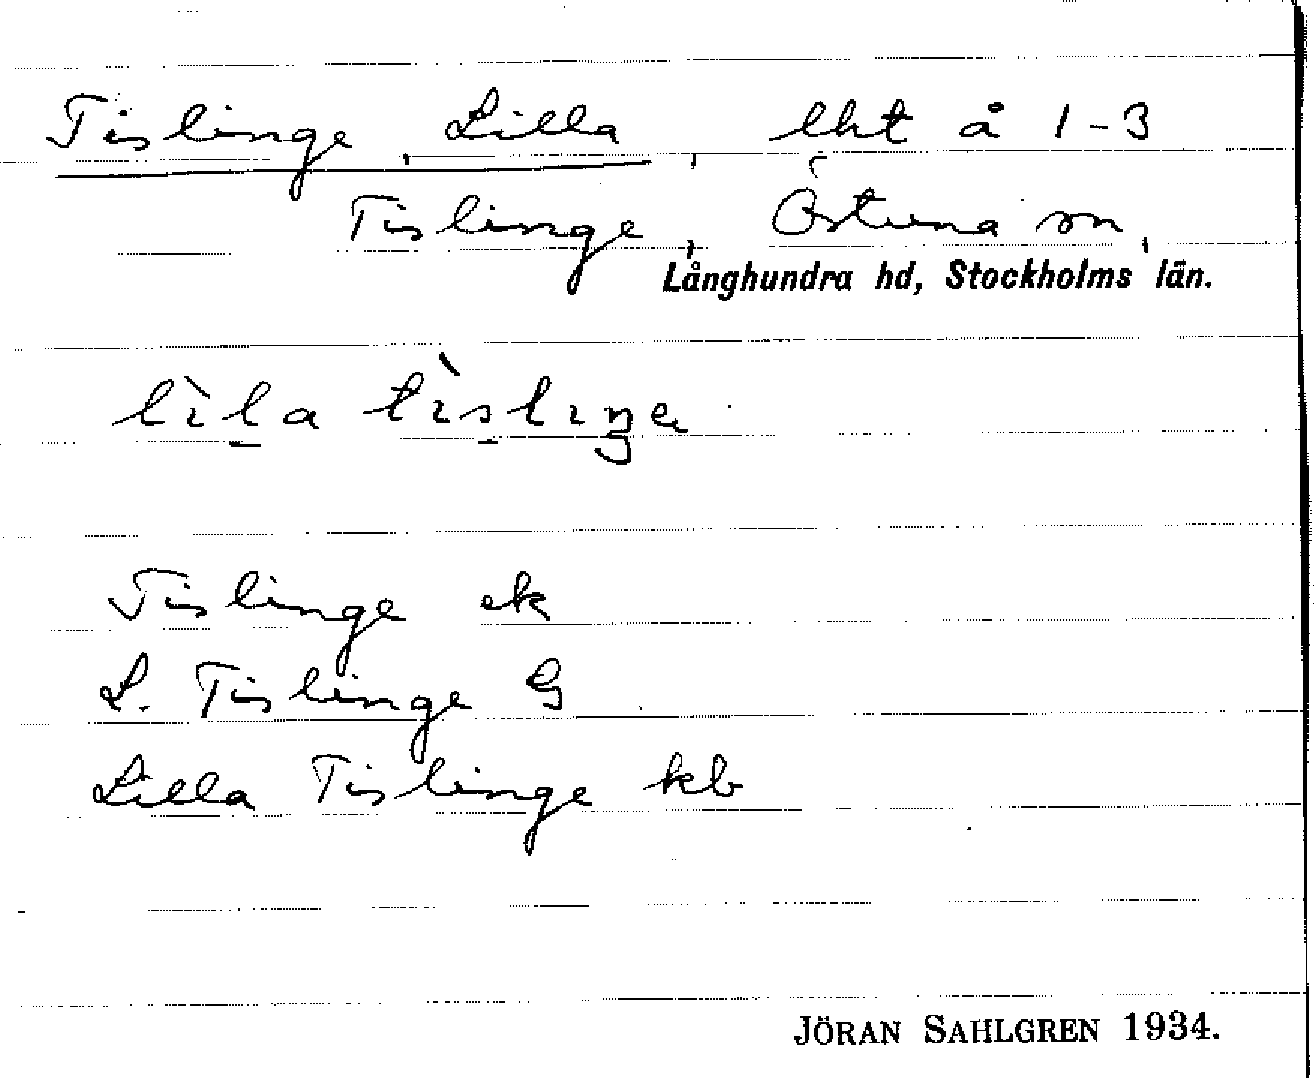 Tislinge, Lilla, lht å 1-3
Tislinge, Östuna sn,
Långhundra hd, Stockholms län.
lìl̠a tìs̠lıŋe
Tislinge ek
L. Tislinge G
Lilla Tislinge kb
JÖRAN SAHLGREN 1934.